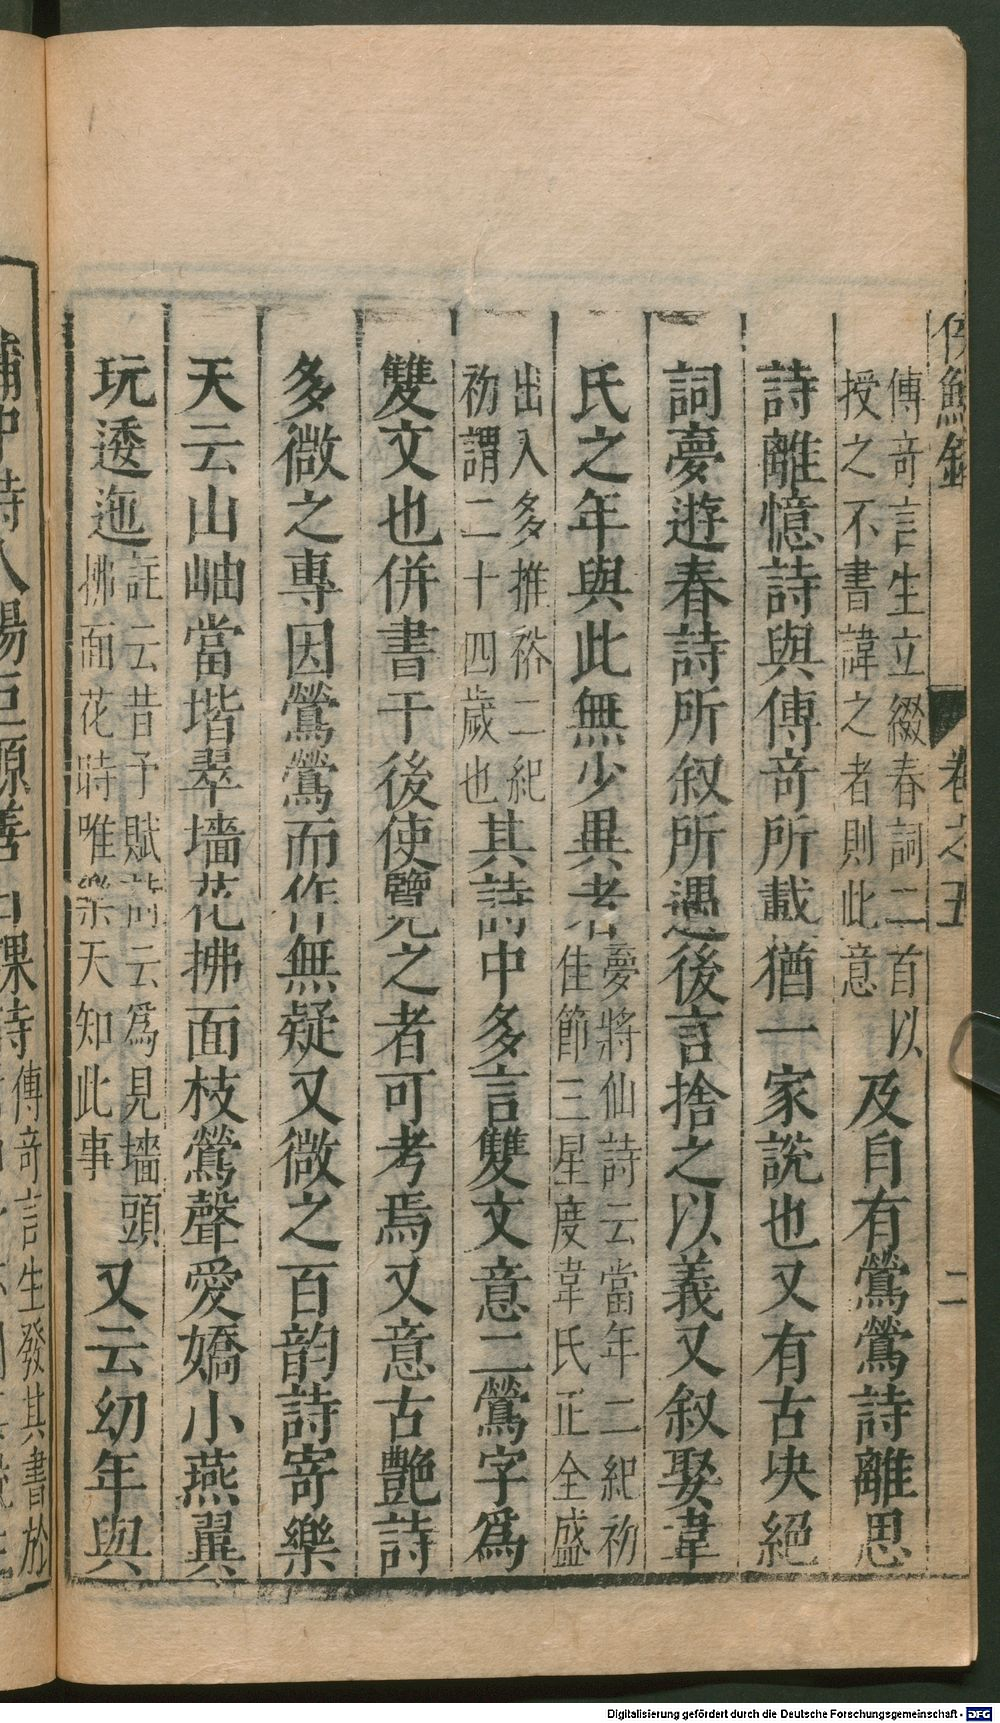 侯鯖錄 卷之五 二
傳奇言生立綴春詞二首以
授之不書諱之者則此意
及自有鶯鶯詩離思
詩離憶詩與傳奇所載猶一家說也又有古決絕
詞夢遊春詩所叙所遇後言捨之以義又叙娶韋
氏之年與此無少異者
夢將仙詩云當年二紀初
佳節三星度韋氏正全盛
出入多推裕二紀
初謂二十四歲也
其詩中多言雙文意二鶯字爲
雙文也併書于後使覽之者可考焉又意古艷詩
多微之專因鶯鶯而作無疑又微之百韵詩寄樂
天云山岫當堦翠墻花拂面枝鶯聲愛嬌小燕翼
玩逶迤
註云昔予賦詩云爲見墻頭
拂面花時唯樂天知此事
又云幼年與
蒲中詩人楊巨源善日課詩
傳奇言生發其書於
Digitalisierung gefördert durch die Deutsche Forschungsgemeinschaft - DFG